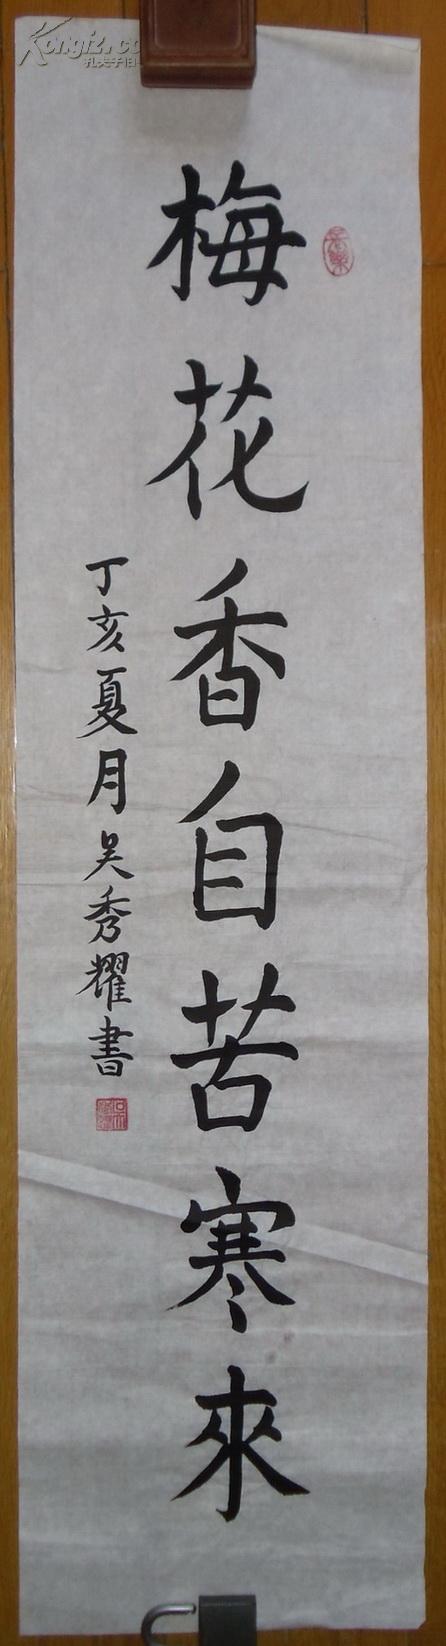 梅花香自苦寒來
丁亥夏月吴秀耀書
Kongfz.co
孔夫子旧